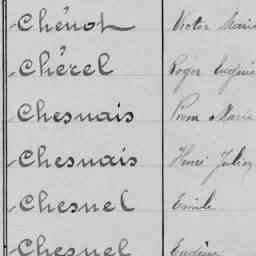 Chênot Victor Marie
Chérel Roger Eugène
Chesnais Marie
Chesnais Henri Julien
Chesnel Emile
Chesnel Eugène